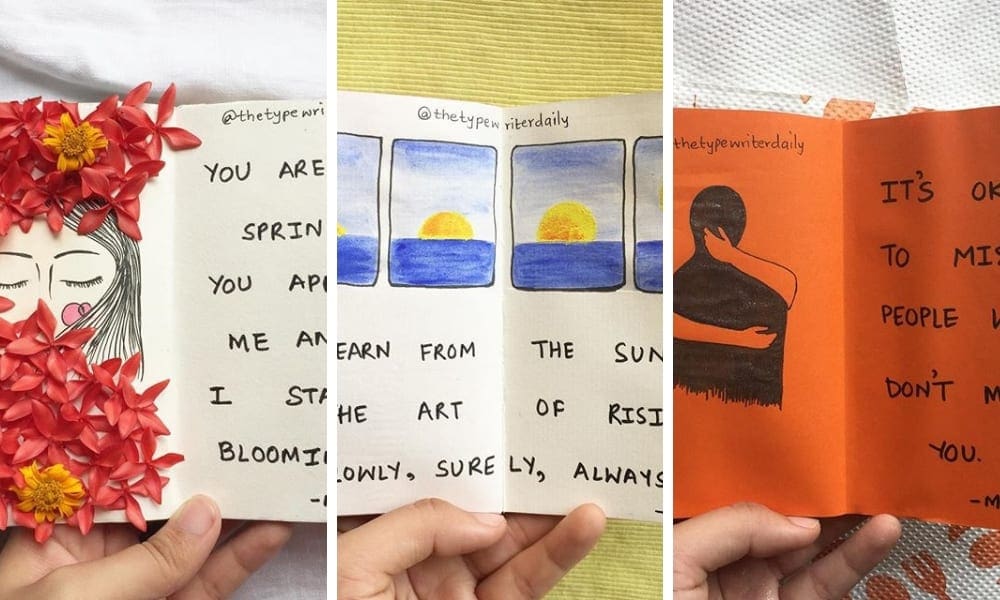 @thetypewri
YOU ARE
SPRIN
YOU APP
ME AN
I STA
BLOOMI
@thetypewriterdaily
EARN FROM THE SUN
HE ART OF RISI
LOWLY, SURELY, ALWAYS
thetypewriterdaily
IT'S OK
TO MIS
PEOPLE W
DON'T M
YOU.
-M